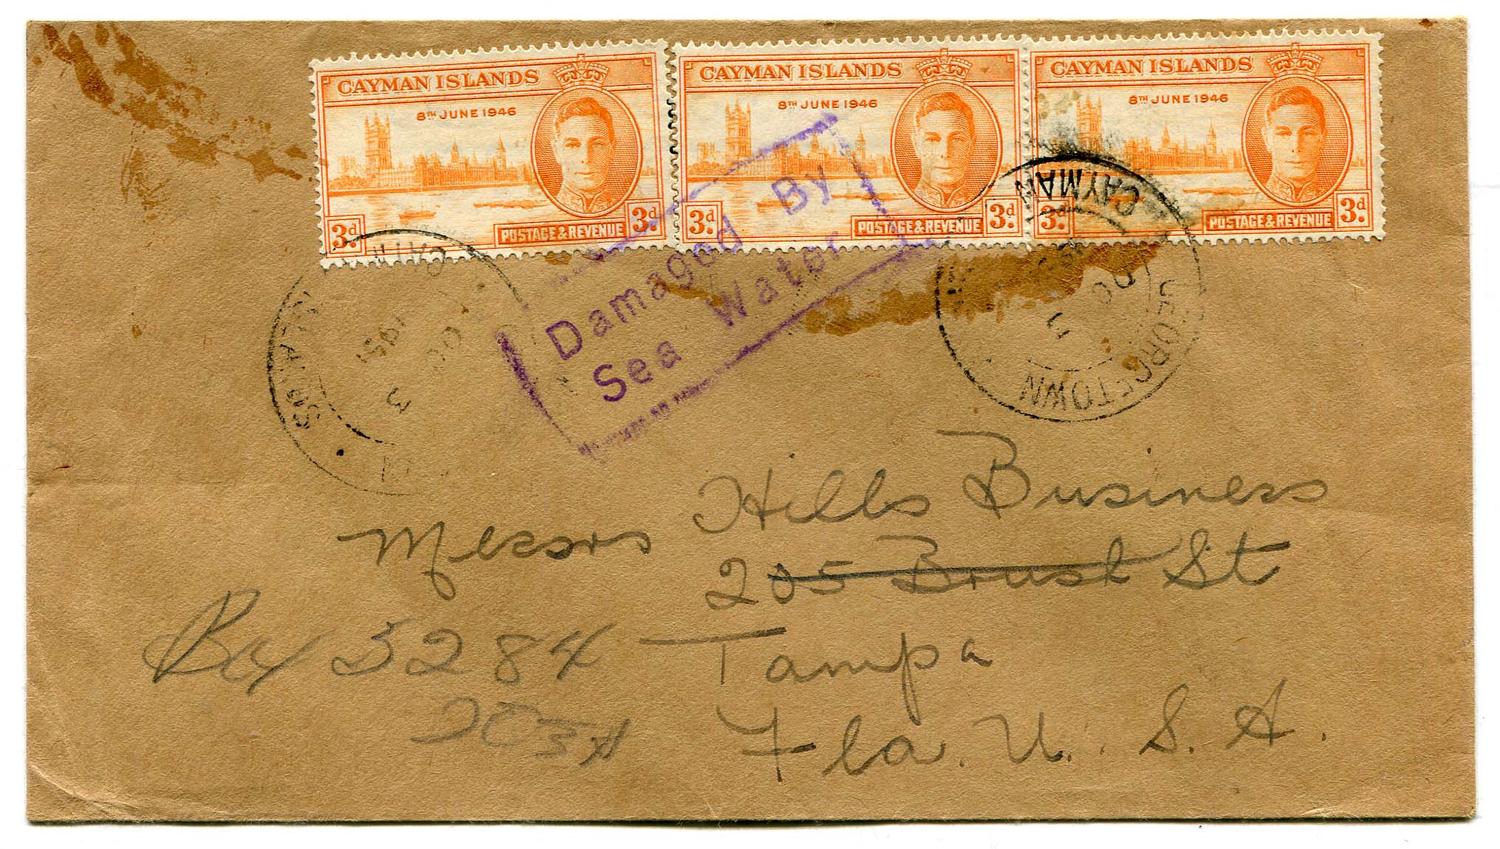 CAYMAN ISLANDS
8TH JUNE 1946
3d
POSTAGE & REVENUE
3d
CAYMAN ISLANDS
8TH JUNE 1946
3d
POSTAGE & REVENUE
3d
CAYMAN ISLANDS
8TH JUNE 1946
3d
POSTAGE & REVENUE
3d
Damaged By
Sea Water
CAYMAN
GEORGETOWN
Messrs Hills Business
205 Brush St
Box 5284 Tampa
Fla. U. S. A.